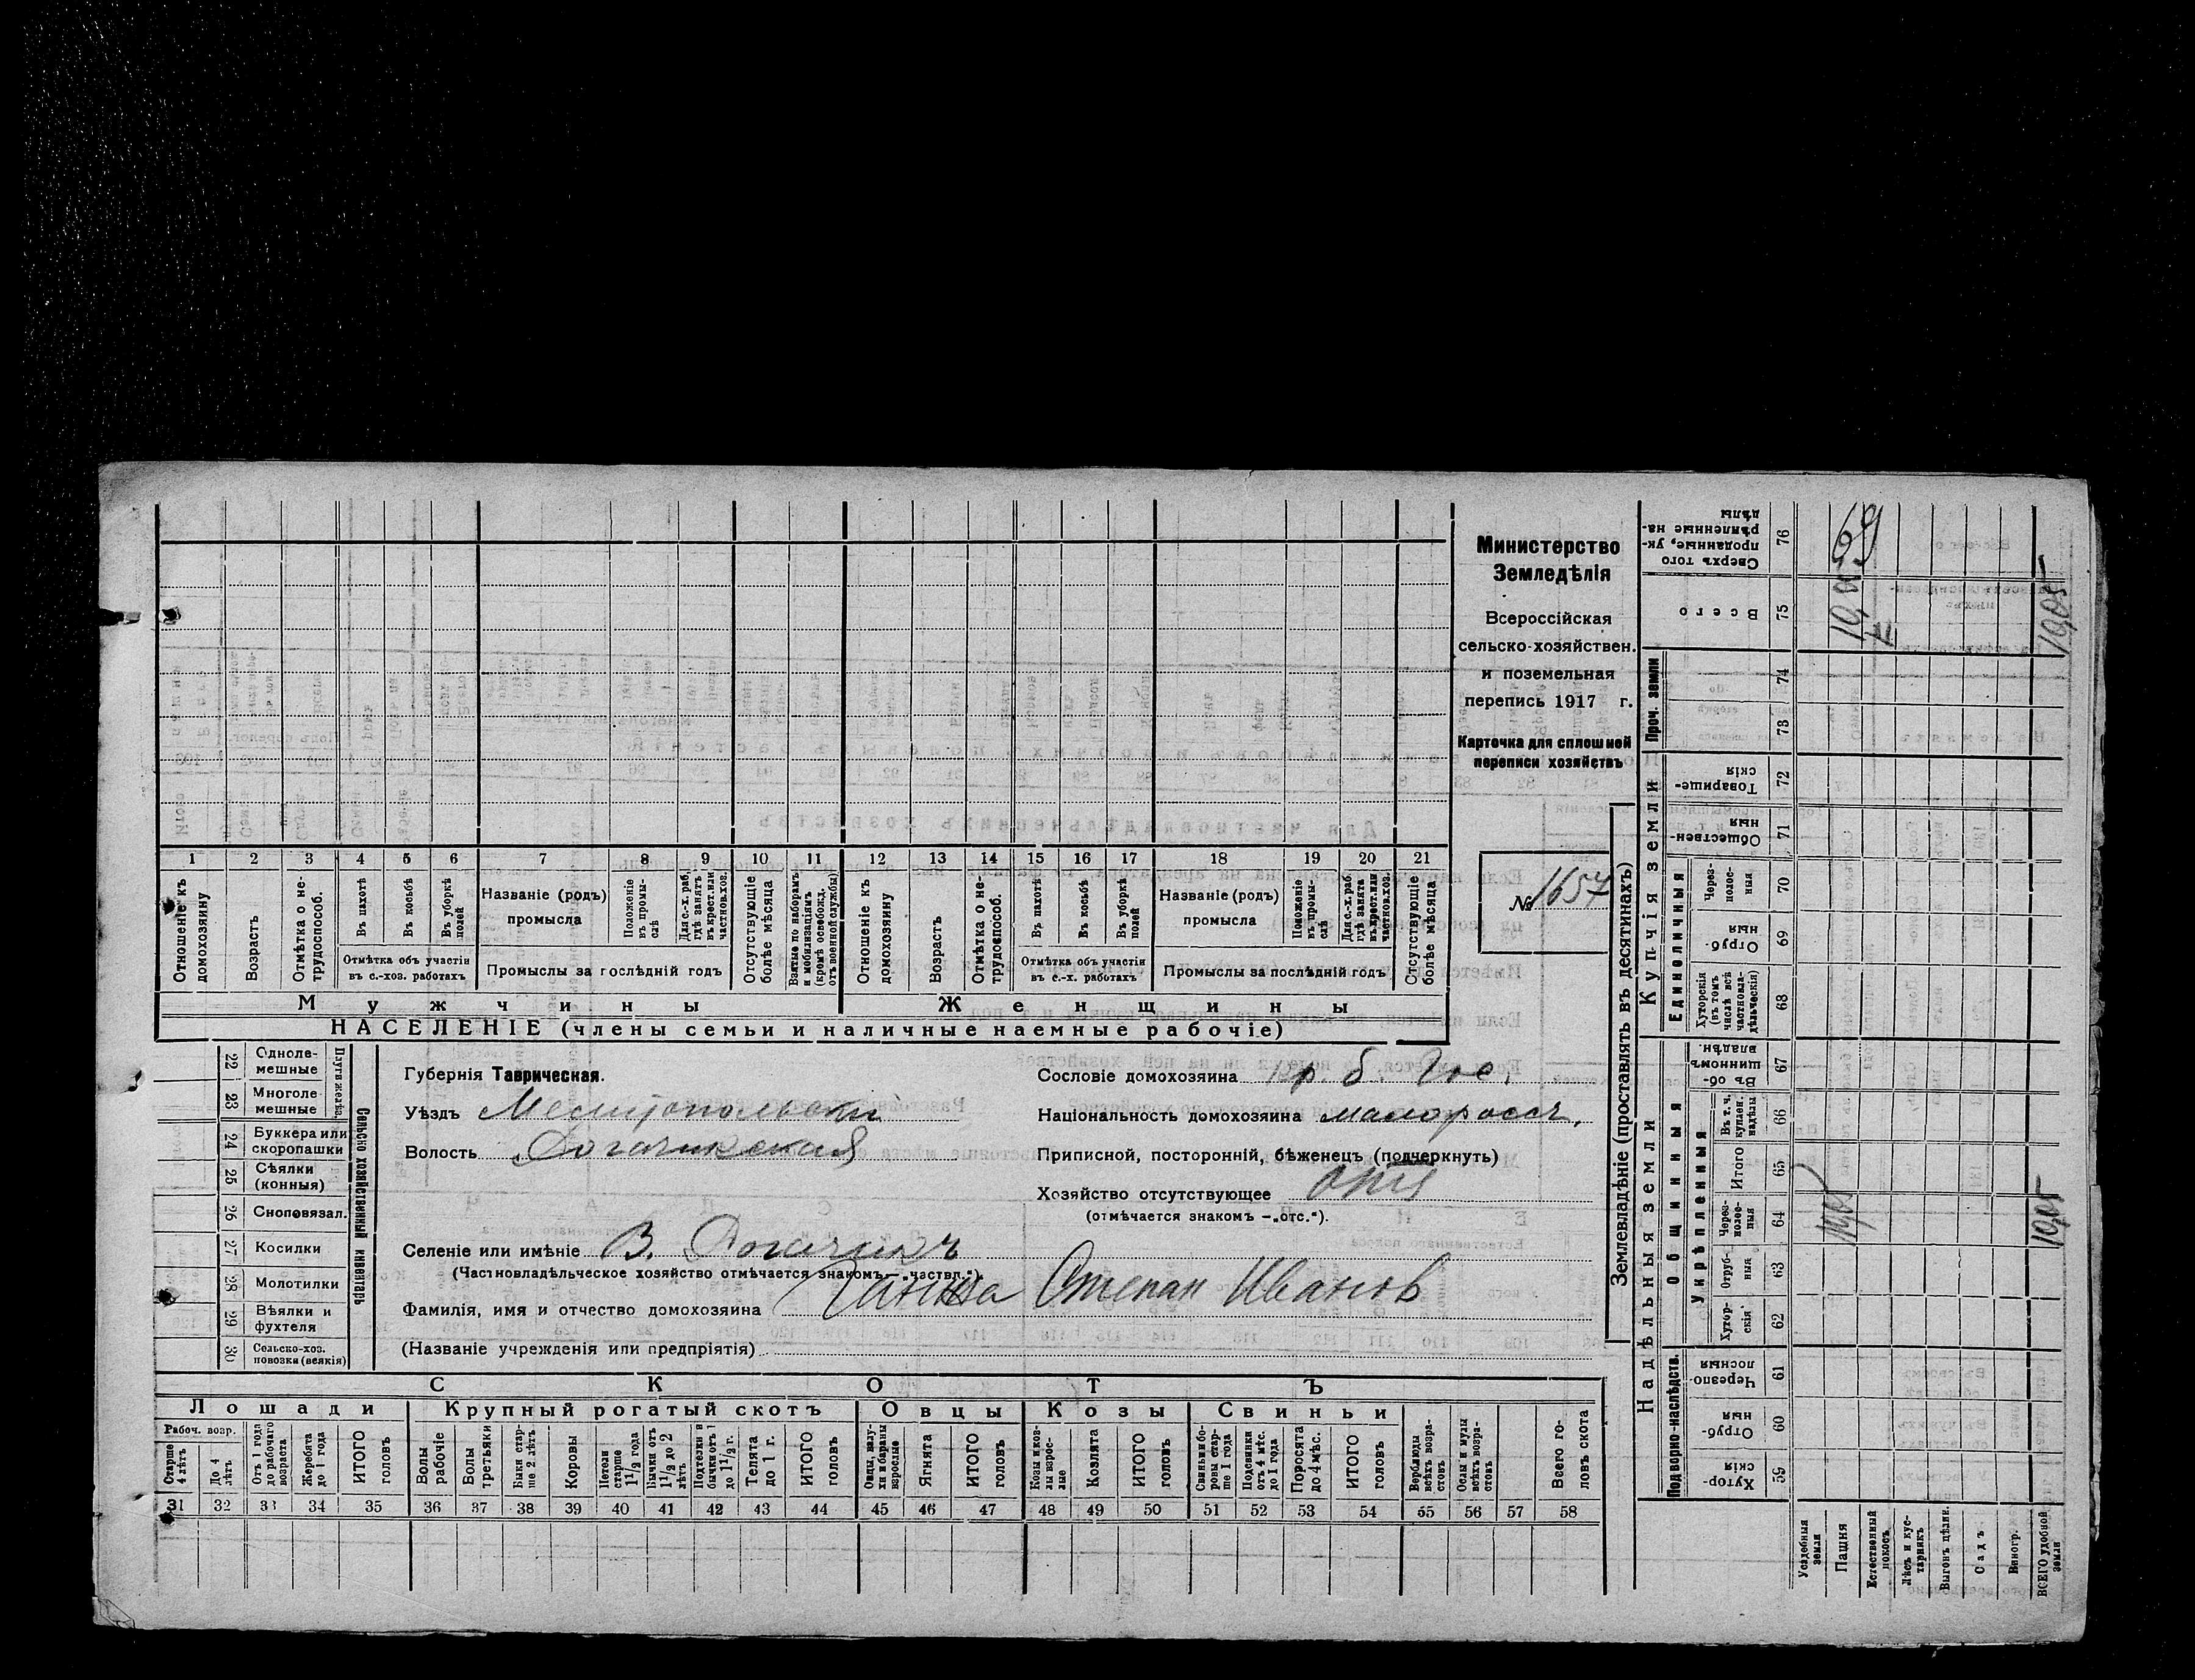 Министерство
Земледѣлія
Всероссійская
сельско-хозяйствен.
и поземельная
перепись 1917 г.
Карточка для сплошной
переписи хозяйствъ
№ 1657
1 2 3 4 5 6 7 8 9 10 11 12 13 14 15 16 17 18 19 20 21
Отношеніе къ домохозяину
Возрастъ
Отмѣтка о не-трудоспособ.
Въ пахотѣ
Въ косьбѣ
Въ уборкѣ полей
Отмѣтка объ участіи въ с.-хоз. работахъ
Названіе (родъ) промысла
Положеніе въ промы-слѣ
Для с.-х. раб. гдѣ занятъ въ крест. или частнов. хоз.
Промыслы за послѣдній годъ
Отсутствующіе болѣе мѣсяца
Взятые по наборамъ и мобилизаціямъ (кромѣ освобожд. отъ военной службы)
Отношеніе къ домохозяину
Возрастъ
Отмѣтка о не-трудоспособ.
Въ пахотѣ
Въ косьбѣ
Въ уборкѣ полей
Отмѣтка объ участіи въ с.-х. работахъ
Названіе (родъ) промысла
Положеніе въ промы-слѣ
Для с.-х. раб. гдѣ занята въ крест. или частнов. хоз.
Промыслы за послѣдній годъ
Отсутствующіе болѣе мѣсяца
Мужчины
Женщины
НАСЕЛЕНІЕ (члены семьи и наличные наемные рабочіе)
22 Однолемешные
23 Многолемешные
Плуги желѣз.
24 Буккера или скоропашки
25 Сѣялки (конныя)
26 Сноповязал.
27 Косилки
28 Молотилки
29 Вѣялки и фухтеля
30 Сельско-хоз. повозка (всякія)
Сельско хозяйственный инвентарь
Губернія Таврическая.
Уѣздъ Мелитопольскій
Волость Рогачикская
Сословіе домохозяина
Національность домохозяина малороссъ.
Приписной, посторонній, бѣженецъ (подчеркнуть)
Хозяйство отсутствующее
(отмѣчается знакомъ —„отс.").
Селеніе или имѣніе В. Рогачикъ
(Частновладѣльческое хозяйство отмѣчается знакомъ—„частвл.")
Фамилія, имя и отчество домохозяина Степан Иванов
(Названіе учрежденія или предпріятія)
СКОТЪ
Лошади
Крупный рогатый скотъ
Овцы
Козы
Свиньи
Рабоч. возр.
Старше 4 лѣтъ
До 4 лѣтъ
Отъ 1 года до рабочаго возраста
Жеребята до 1 года
ИТОГО головъ
Волы рабочіе
Волы третьяки
Быки стар-ше 2 лѣтъ
Коровы
Нетели старше 1½ года
Бычки отъ 1½ до 2 лѣтъ
Подтелки и бычки отъ 1 до 1½ г.
Телята до 1 г.
ИТОГО головъ
Овцы, валу-хи и бараны взрослые
Ягнята
ИТОГО головъ
Козы и коз-лы взрос-лые
Козлята
ИТОГО головъ
Свиньи и бо-ровы стар-ше 1 года
Подсвинки отъ 4 мѣс. до 1 года
Поросята до 4 мѣс.
ИТОГО головъ
Верблюды всѣхъ возра-стовъ
Ослы и мулы всѣхъ возра-стовъ
Всего го-ловъ скота
31 32 33 34 35 36 37 38 39 40 41 42 43 44 45 46 47 48 49 50 51 52 53 54 55 56 57 58
Землевладѣніе (проставлять въ десятинахъ)
Надѣльныя земли
Купчія земли
Проч. земли
Подворно-наслѣдств.
Общинныя
Укрѣпленныя
Единоличныя
Хутор-скія 59
Отруб-ныя 60
Черезпо-лосныя 61
Хутор-скія 62
Отруб-ныя 63
Через-полос-ныя 64
Итого 65
Въ т. ч. куплен. надѣлы 66
Въ об-щинномъ владѣн. 67
Хуторскія (въ томъ числѣ всѣ частновла-дѣльческія) 68
Отруб-ныя 69
Через-полос-ныя 70
Обществен-ныя 71
Товарище-скія 72
73
74
Всего 75
Сверхъ того проданные, ук-рѣпленные на-дѣлы 76
Усадебныя земли
Пашня
Естественный покосъ
Лѣсъ и кус-тарникъ
Выгонъ цѣлин.
Садъ
Виногр.
ВСЕГО удобной земли
69
10,05
10,05